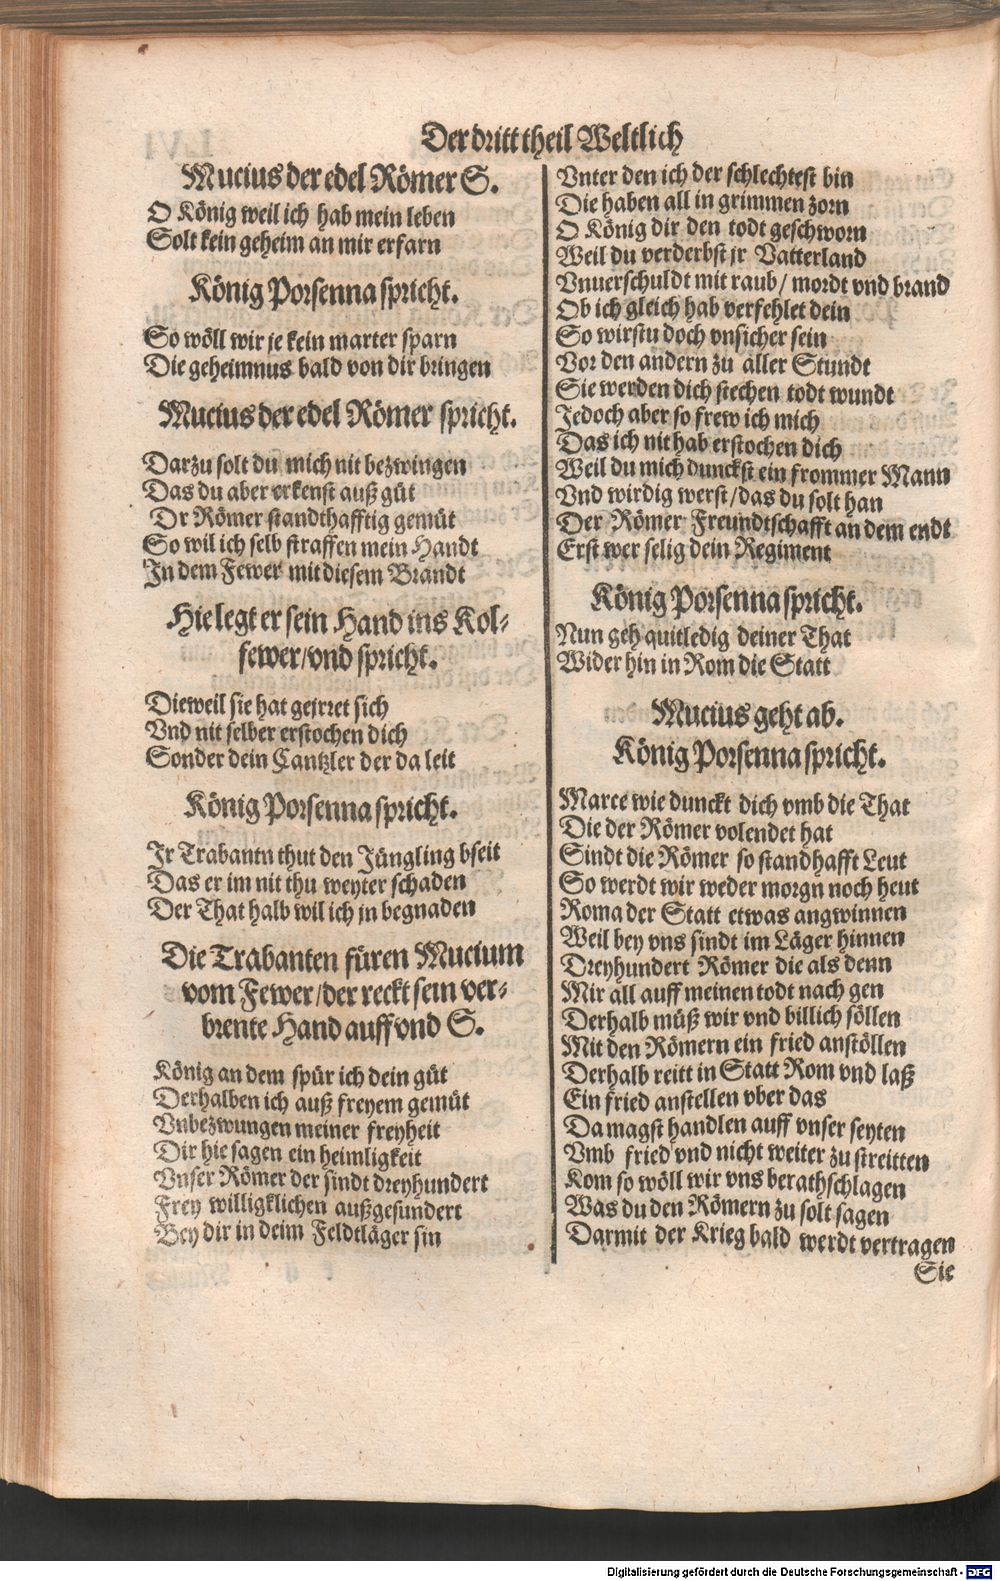 Der dritt theil Weltlich
Mucius der edel Römer S.
O König weil ich hab mein leben
Solt kein geheim an mir erfarn
König Porsenna spricht.
So wöll wir je kein marter sparn
Die geheimnus bald von dir bringen
Mucius der edel Römer spricht.
Darzu solt du mich nit bezwingen
Das du aber erkenst auß güt
Dr Römer standthafftig gemüt
So wil ich selb straffen mein Handt
In dem Fewer mit diesem Brandt
Hie legt er sein Hand ins Kol-
fewer/vnd spricht.
Dieweil sie hat geirret sich
Vnd nit selber erstochen dich
Sonder dein Cantzler der da leit
König Porsenna spricht.
Ir Trabantn thut den Jüngling bseit
Das er im nit thu weyter schaden
Der That halb wil ich jn begnaden
Die Trabanten füren Mucium
vom Fewer/der reckt sein ver-
brente Hand auff vnd S.
König an dem spür ich dein güt
Derhalben ich auß freyem gemüt
Vnbezwungen meiner freyheit
Dir hie sagen ein heimligkeit
Vnser Römer der sindt dreyhundert
Frey willigklichen außgesundert
Bey dir in deim Feldtläger sin
Vnter den ich der schlechtest bin
Die haben all in grimmen zorn
O König dir den todt geschworn
Weil du verderbst jr Vatterland
Vnuerschuldt mit raub/ mordt vnd brand
Ob ich gleich hab verfehlet dein
So wirstu doch vnsicher sein
Vor den andern zu aller Stundt
Sie werden dich stechen todt wundt
Jedoch aber so frew ich mich
Das ich nit hab erstochen dich
Weil du mich dunckst ein frommer Mann
Vnd wirdig werst/das du solt han
Der Römer Freundtschafft an dem endt
Erst wer selig dein Regiment
König Porsenna spricht.
Nun geh quitledig deiner That
Wider hin in Rom die Statt
Mucius geht ab.
König Porsenna spricht.
Marce wie dunckt dich vmb die That
Die der Römer volendet hat
Sindt die Römer so standhafft Leut
So werdt wir weder morgn noch heut
Roma der Statt etwas angwinnen
Weil bey vns sindt im Läger hinnen
Dreyhundert Römer die als denn
Mir all auff meinen todt nach gen
Derhalb müß wir vnd billich söllen
Mit den Römern ein fried anstöllen
Derhalb reitt in Statt Rom vnd laß
Ein fried anstellen vber das
Da magst handlen auff vnser seyten
Vmb fried vnd nicht weiter zu streitten
Kom so wöll wir vns berathschlagen
Was du den Römern zu solt sagen
Darmit der Krieg bald werdt vertragen
Sie
Digitalisierung gefördert durch die Deutsche Forschungsgemeinschaft - DFG